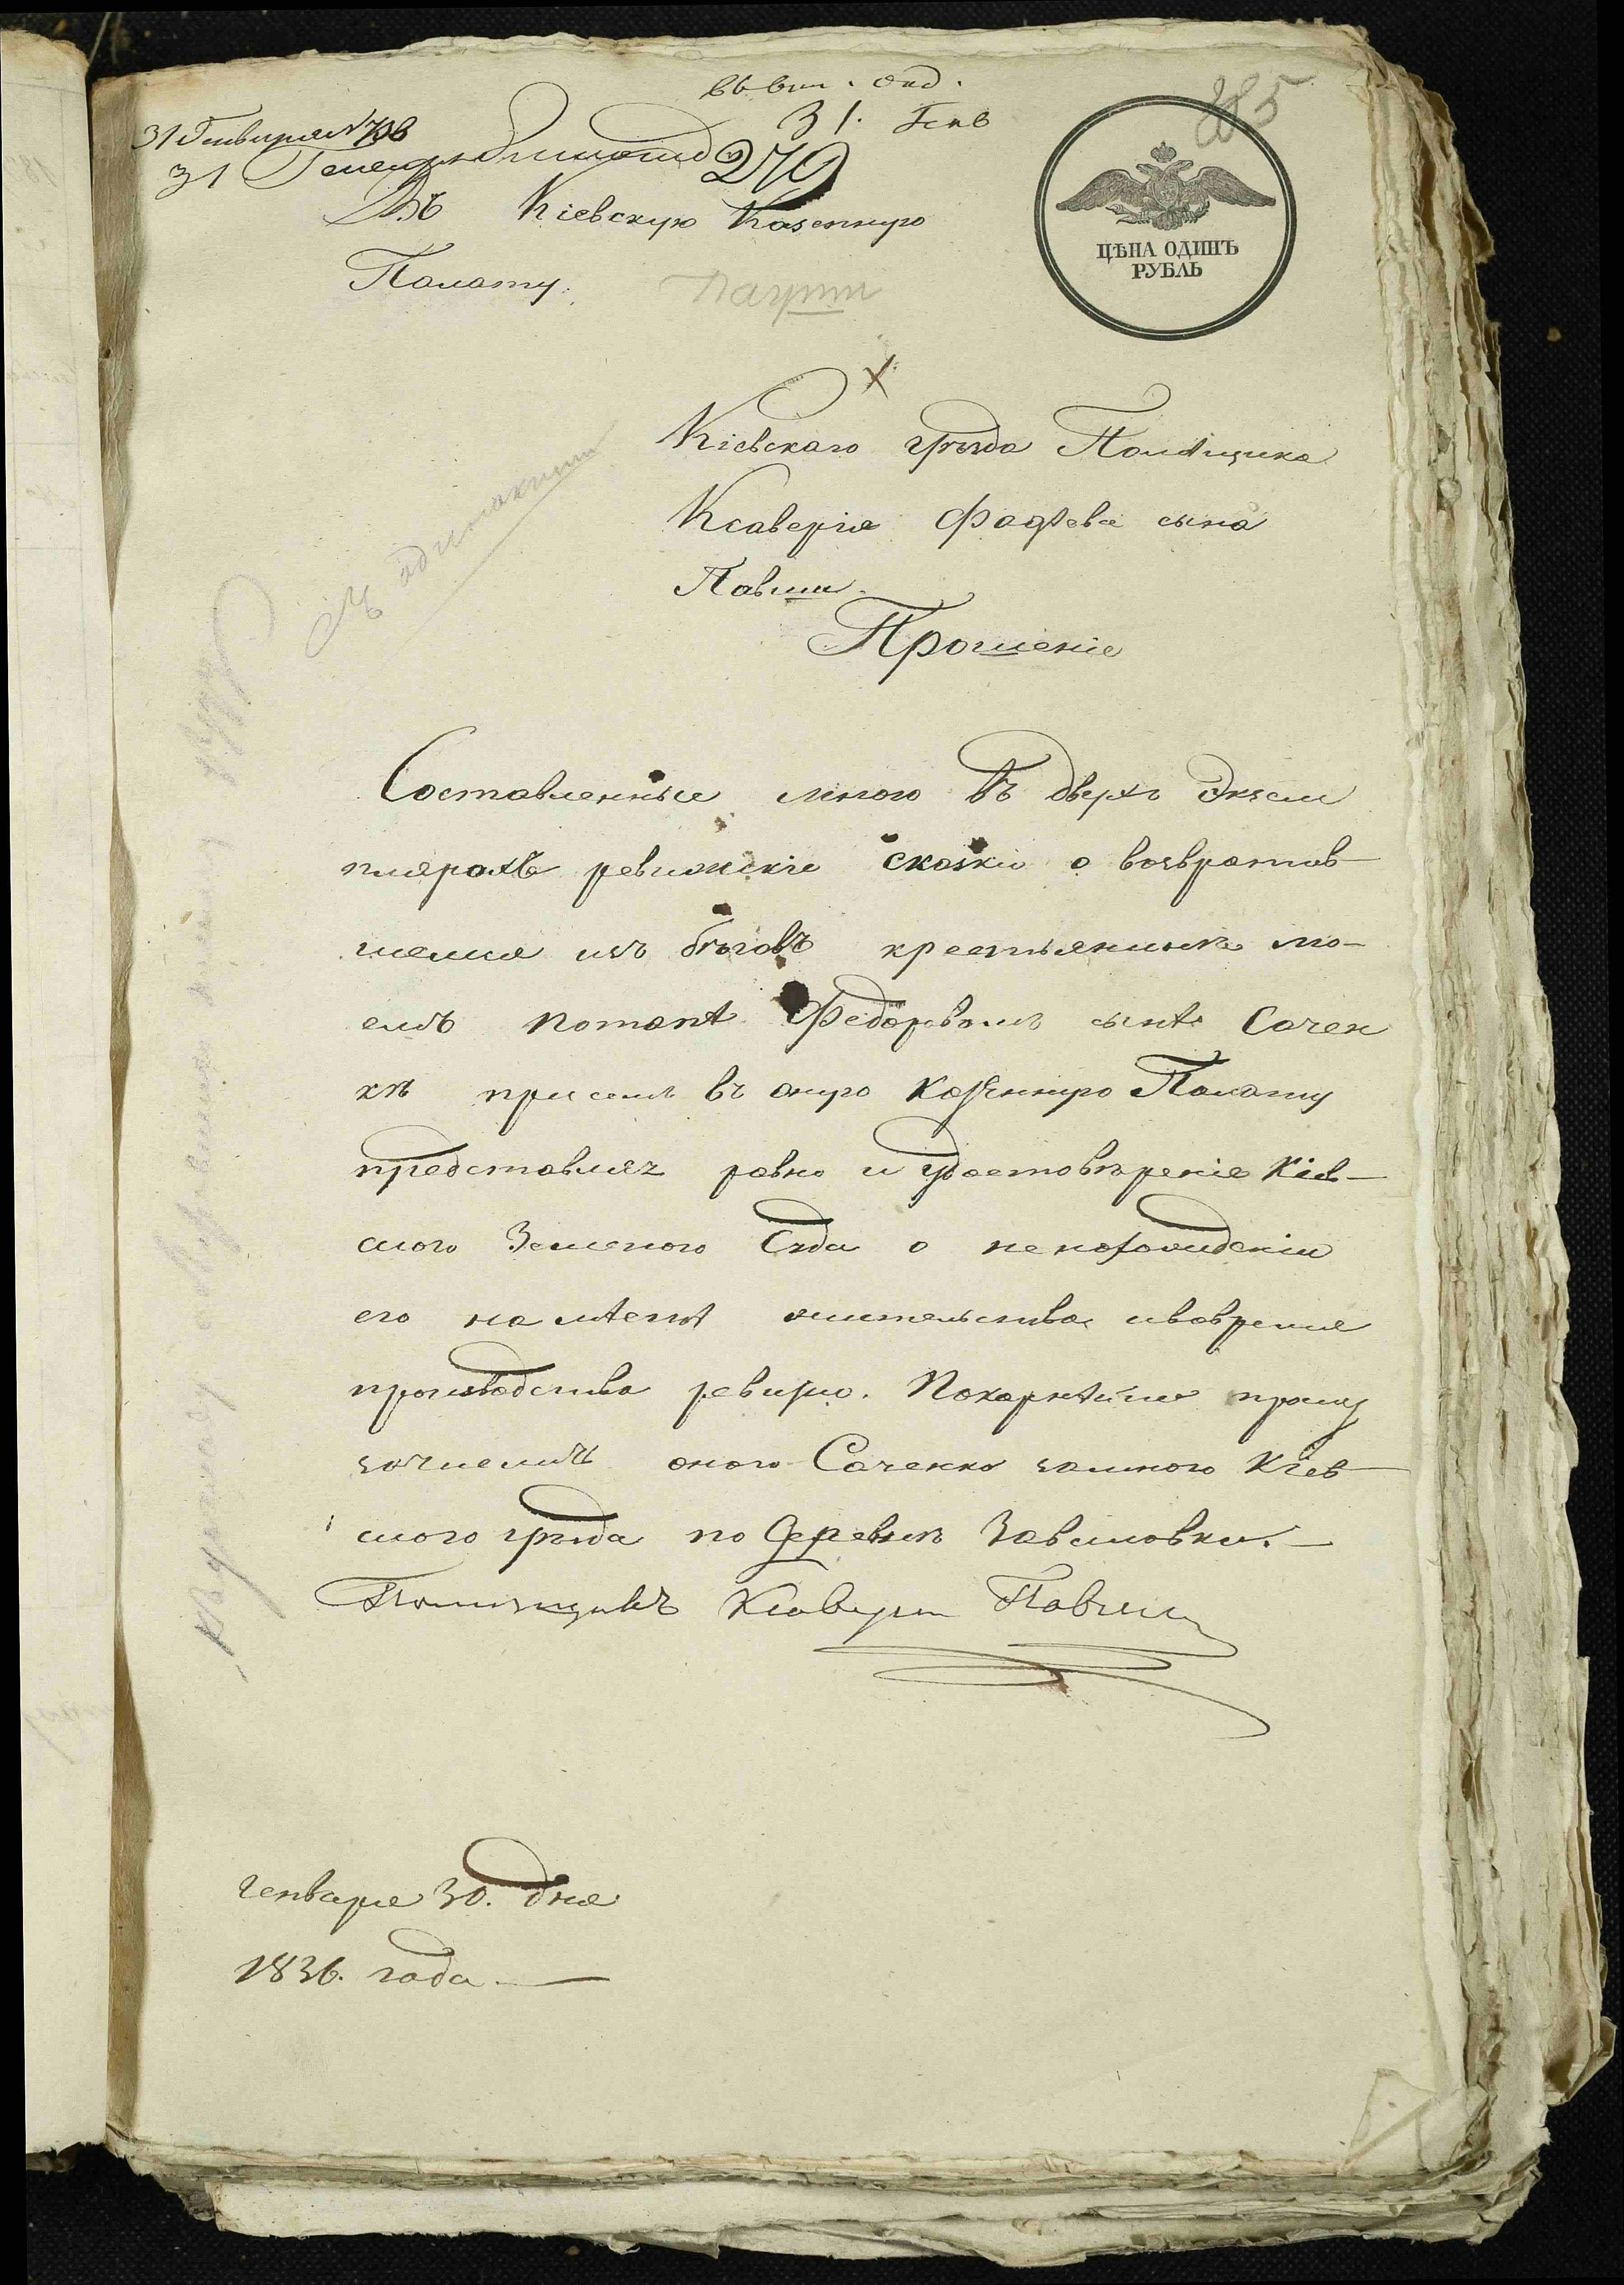 31 Генв
31 Генваря
279
Въ Кіевскую Казенную
Палату.
ЦѢНА ОДИНЪ
РУБЛЬ
Кіевскаго уѣзда Помѣщика
Ксаверія Фадѣева сына
Павши
Прошеніе
Составленные мною въ двухъ Экзем
плярахъ ревижскіе скаски о возвратив-
шемся изъ бѣговъ крестьянинѣ мо-
емъ Потапѣ Федоровомъ сынѣ Сачен
кѣ при семъ въ оную Казенную Палату
представляя равно и удостовѣреніе Кіев-
ского Земского Суда о ненахождении
его на мѣстѣ жительства вовремя
производства ревизіи. Покорнѣйше прошу
зачислить оного Саченка замною Кіев-
ского уѣзда по Деревнѣ Заваловки.
Помѣщикъ Ксаверий Павша
генваря 30. дня
1836. года